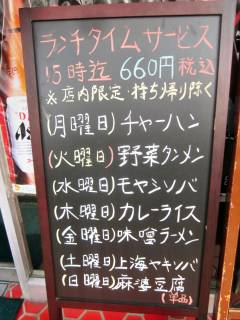 ランチタイムサービス
15時迄 660円 税込
※店内限定・持ち帰り除く
(月曜日)チャーハン
(火曜日)野菜タンメン
(水曜日)モヤシソバ
(木曜日)カレーライス
(金曜日)味噌ラーメン
(土曜日)上海ヤキソバ
(日曜日)麻婆豆腐
(単品)